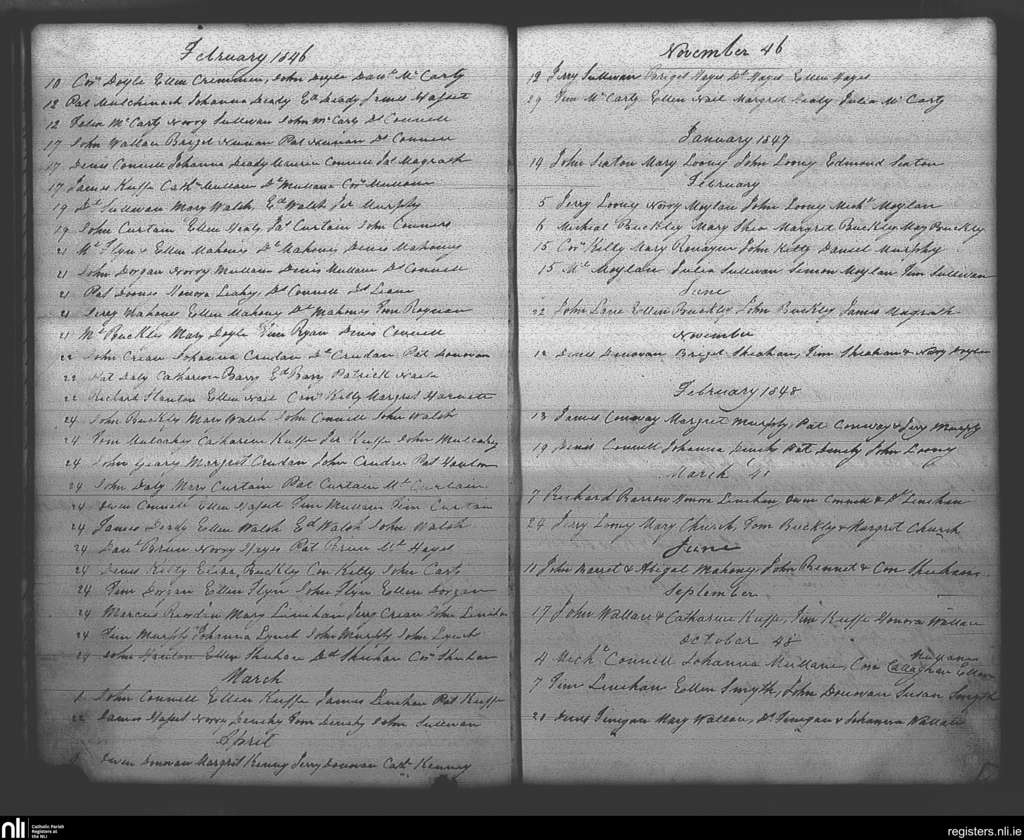 February 1846
10 Corˢ Doyle Ellen Cremmin, John Doyle Danˡ Mc Carty
12 Pat Mulchinock Johanna Deady Eᵈ Deady James Hasset
12 Felix Mc Carty Norry Sullivan John McCarty Dˢ Connell
17 John Wallan Briget Nunan Pat Nunan Dˢ Connell
17 Denis Connell Johanna Deady Connell Jaˢ Magrath
17 James Keeffe Cathⁿ Mullane Dˢ Mullane Corˢ Mullane
19 Dˡ Sullivan Mary Walsh Eᵈ Walsh Jer Murphy
19 John Curtain Ellen Healy Jaˢ Curtain John Connors
21 Mˡ Flyn & Ellen Mahonie Dˢ Mahoney Denis Mahoney
21 John Dorgan Norry Mullane Denis Mullane Dˢ Connell
21 Pat Honora Leahy, Dˢ Connell Dˢ Leane
21 Jerry Mahoney Ellen Mahony Dˢ Mahoney Tom
21 Mˡ Buckley Mary Doyle Tim Ryan Denis Connell
22 John Crean Johanna Crudan Dˢ Crudan Pat Donovan
22 Pat Daly Catharine Barry Eᵈ Barry Patrick
22 Richard Stanton Ellen Nail Corˢ Kelly Margret Harnett
24 John Buckley Mary Walsh John Connell John Walsh
24 Tom Mulcahy Catharine Keeffe Jer Keeffe John Mulcahy
24 John Geary Margret Crudan John Crudan Pat Hanlon
24 John Daly Mary Curtain Pat Curtain Mˡ Curtain
24 Owen Connell Ellen Hasset Tim Mullane Tim Curtain
24 James Deady Ellen Walsh Eᵈ Walsh John Walsh
24 Danˡ Brien Norry Hayes Pat Brien Mˡ Hayes
24 Denis Kelly Eliza Buckley Con Kelly John Carty
24 Tim Dorgan Ellen Flyn John Flyn Ellen Dorgan
24 Mary Linehan Jerry Crean John Linehan
24 Tim Murphy Johanna Lynch John Murphy John Lynch
24 John Hanlon Ellen Sheehan Dˡ Sheehan Corˢ Sheehan
March
John Connell Ellen Keeffe James Linehan Pat Keeffe
22 James Hasset Norry Denehy Tom Denehy John Sullivan
April
Owen Donovan Margret Kenny Jerry Donovan Cathⁿ Kenney
November 46
19 Jerry Sullivan Briget Hayes Dˡ Hayes Ellen Hayes
29 Tim Mc Carty Ellen Nail Margret Healy Julia Mc Carty
January 1847
14 John Sexton Mary Loony John Loony Edmond Sexton
February
5 Jerry Loony Norry Moylan John Loony Michˡ Moylan
6 Michial Buckley Mary Shea Margret Buckley May Buckley
15 Corˢ Kelly Mary Ronayne John Kelly Daniel Murphy
15 Mˡ Moylan Julia Sullivan Simon Moylan Tim Sullivan
June
22 John Lane Ellen Buckley John Buckley James Magrath
November
12 Denis Donovan Briget Sheahan, Tim Sheahan & Norry Doyle
February 1848
13 James Conway Margret Murphy, Pat Conway & Jerry Murphy
19 Denis Connell Johanna Denehy Pat Denehy John Loony
March 48
7 Richard Barrow Honora Linehan Owen Connell & Dˡ Linehan
24 Jerry Loony Mary Church, Tom Buckley & Margret Church
June
11 John Barret & Abigal Mahony, John Bennet & Con Sheehan
September
17 John Wallace & Catharine Keeffe, Tim Keeffe Honora Wallace
October 48
4 Michˡ Connell Johanna Mullane, Con Callaghan Ellen Mullane
7 Tim Linehan Ellen Smyth, John Donovan Susan Smyth
21 Denis Finigan Mary Wallace, Dˡ Finigan & Johanna Wallace
nli
Catholic Parish
Registers at
the NLI
registers.nli.ie